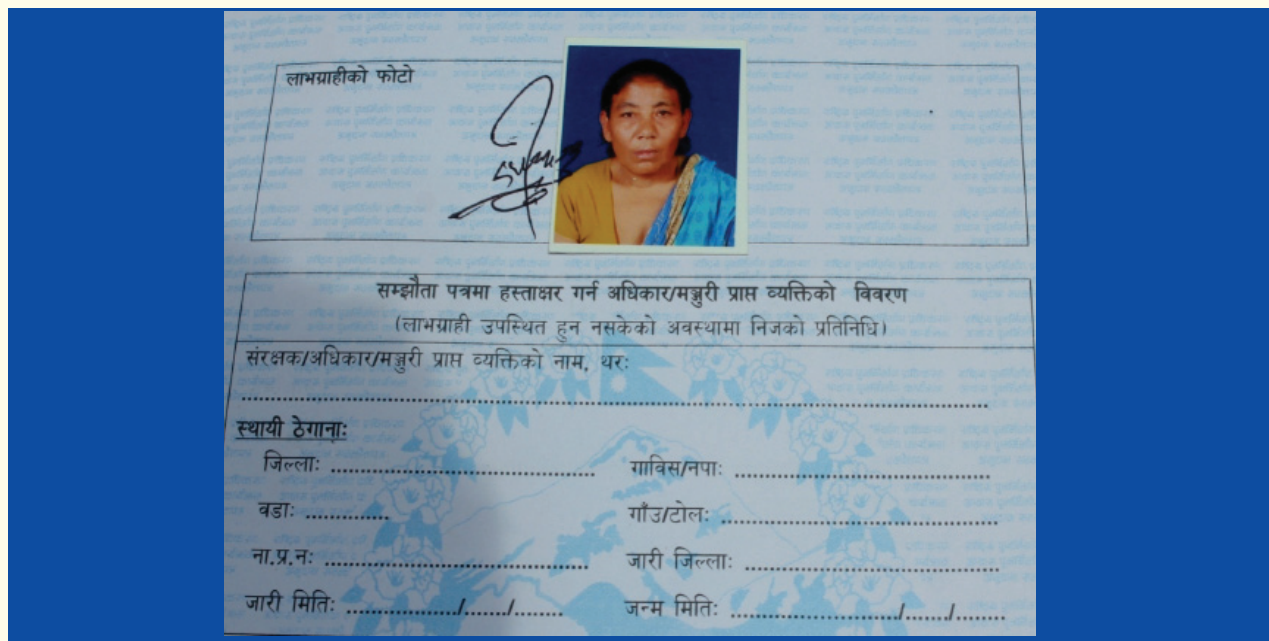 लाभग्राहीको फोटो
सम्झौता पत्रमा हस्ताक्षर गर्न अधिकार/मञ्जुरी प्राप्त व्यक्तिको विवरण
(लाभग्राही उपस्थित हुन नसकेको अवस्थामा निजको प्रतिनिधि)
संरक्षक/अधिकार/मञ्जुरी प्राप्त व्यक्तिको नाम, थरः
स्थायी ठेगानाः
जिल्लाः ........................................ गाविस/नपाः ........................................
वडाः ............. गाँउ/टोलः ........................................
ना.प्र.नः ........................................ जारी जिल्लाः ........................................
जारी मितिः ................../......./........ जन्म मितिः ............................/....../........